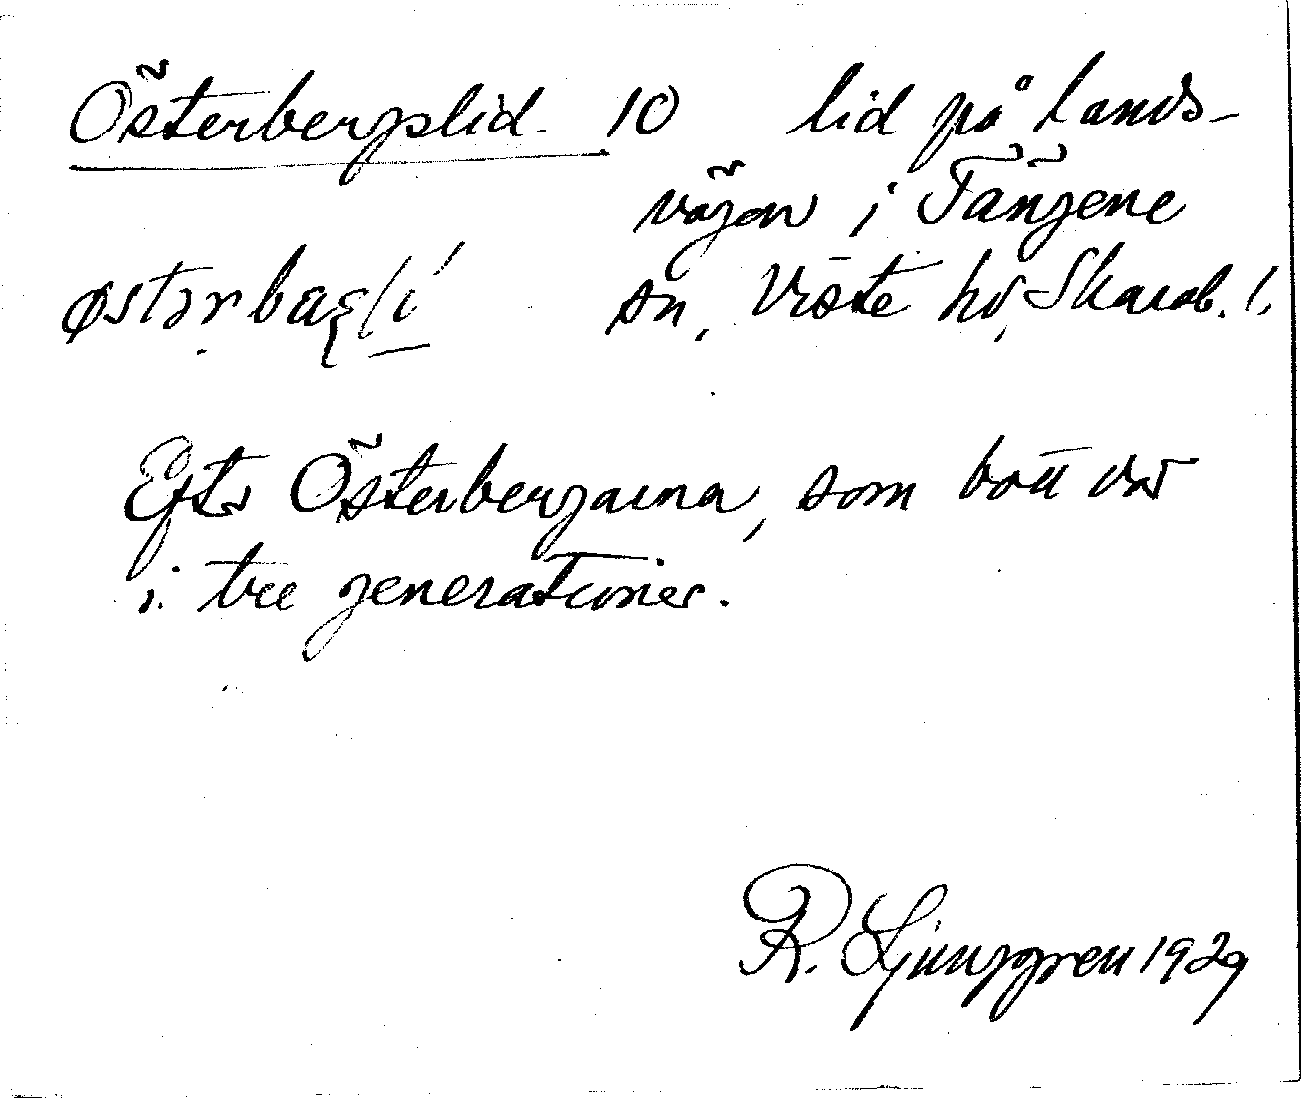 Österbergslid 10 lid på lands-
vägen i Tängene
sn, Viste hd, Skarab. l.
Efter Österbergarna, som bott där
i tre generationer.
R. Ljunggren 1929